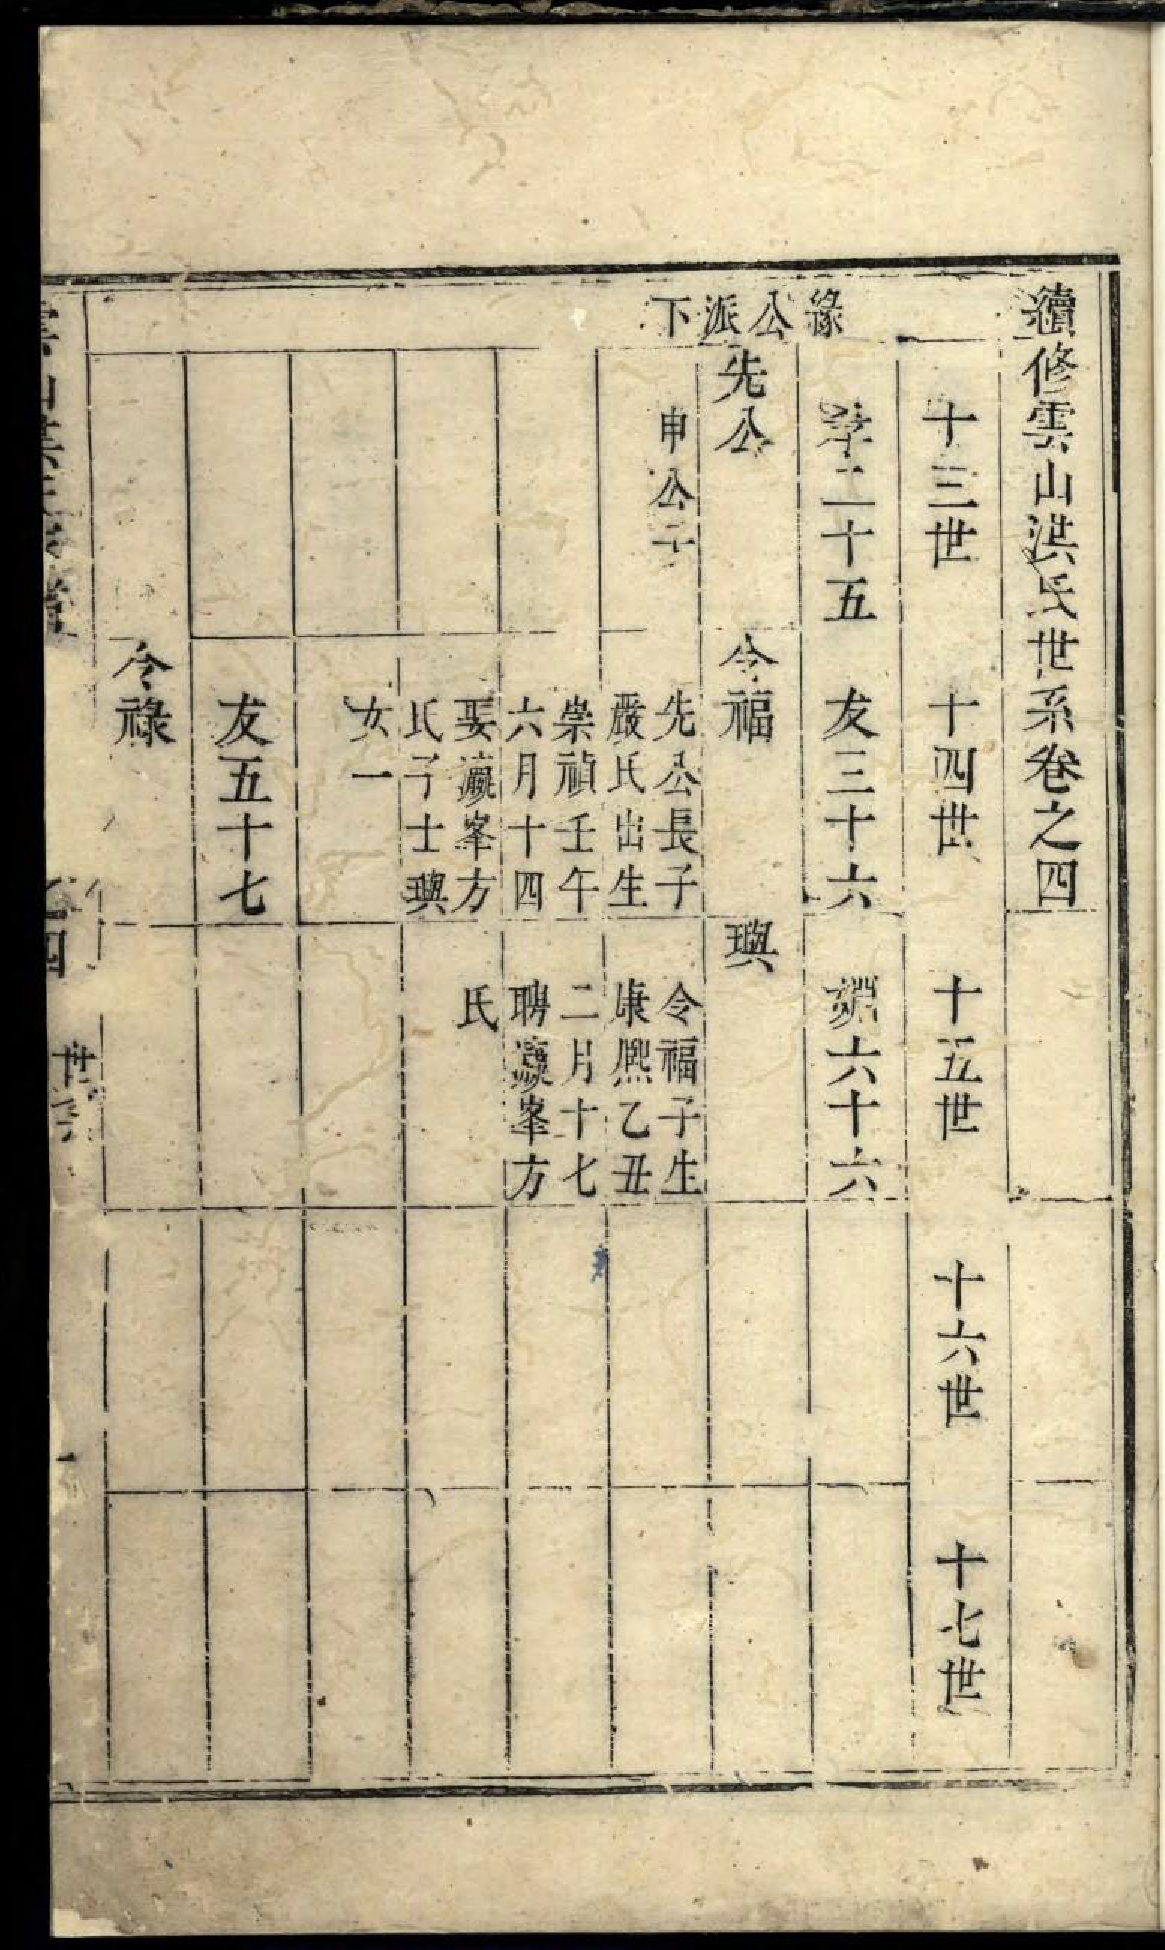 續修雲山洪氏世系卷之四
十三世
十四世
十五世
十六世
十七世
緣公派下
孝二十五
友三十六
淵六十六
先公
令福
璵
申公子
先公長子
嚴氏出生
崇禎壬午
六月十四
娶瀛峯方
氏子士璵
女一
令福子生
康熙乙丑
二月十七
聘瀛峯方
氏
友五十七
令祿